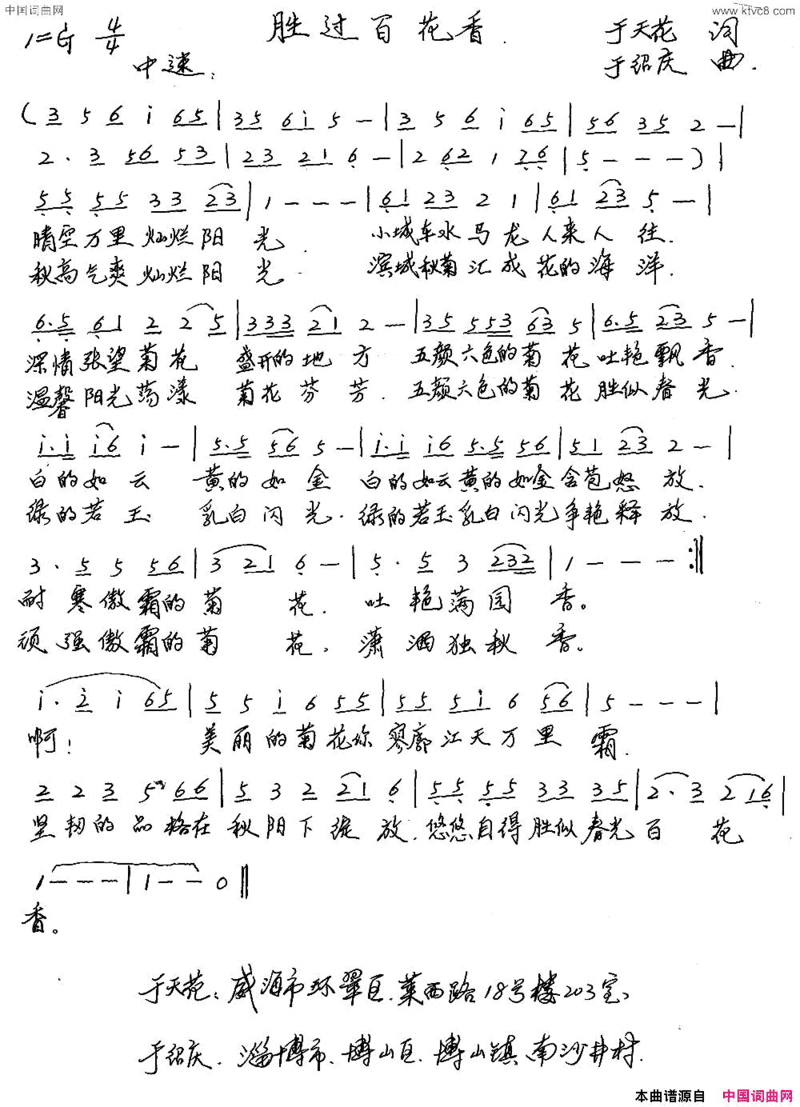 中国词曲网
www.ktvc8.com
1=G 4/4
胜过百花香.
于天花 词
中速:
于绍庆 曲.
(3 5 6 i 65|35 6i 5 -|3 5 6 i 65|56 35 2 -|
2. 3 56 53|23 21 6 -|2 62 1 76|5 - - -)|
55 55 33 23|1 - - -|61 23 2 1|61 23 5 -|
晴空万里灿烂阳光. 小城车水马龙人来人往.
秋高气爽灿烂阳光. 滨城秋菊汇成花的海洋.
6.5 61 2 2 5|333 21 2 -|35 553 63 5|6.5 23 5 -|
深情张望菊花 盛开的地方 五颜六色的菊花吐艳飘香.
温馨阳光荡漾 菊花芬芳. 五颜六色的菊花胜似春光.
i.i i6 i -|5.5 56 5 -|i.i i6 5.5 56|51 23 2 -|
白的如云 黄的如金 白的如云黄的如金含苞怒放.
绿的若玉 乳白闪光. 绿的若玉乳白闪光争艳释放.
3. 5 5 56|3 21 6 -|5. 5 3 232|1 - - - :‖
耐寒傲霜的菊花. 吐艳满园香。
顽强傲霜的菊花, 潇洒独秋香。
i. 2 i 65|5 5 i 6 55|55 5i 6 56|5 - - -|
啊! 美丽的菊花你寥廓江天万里霜.
2 2 3 5 66|5 3 2 21 6|55 55 33 35|2. 3 2 16|
坚韧的品格在秋阳下绽放. 悠悠自得胜似春光百花
1 - - -|1 - - 0‖
香。
于天花: 威海市环翠区.莱西路18号楼203室。
于绍庆. 淄博市.博山区.博山镇.南沙井村.
本曲谱源自 中国词曲网